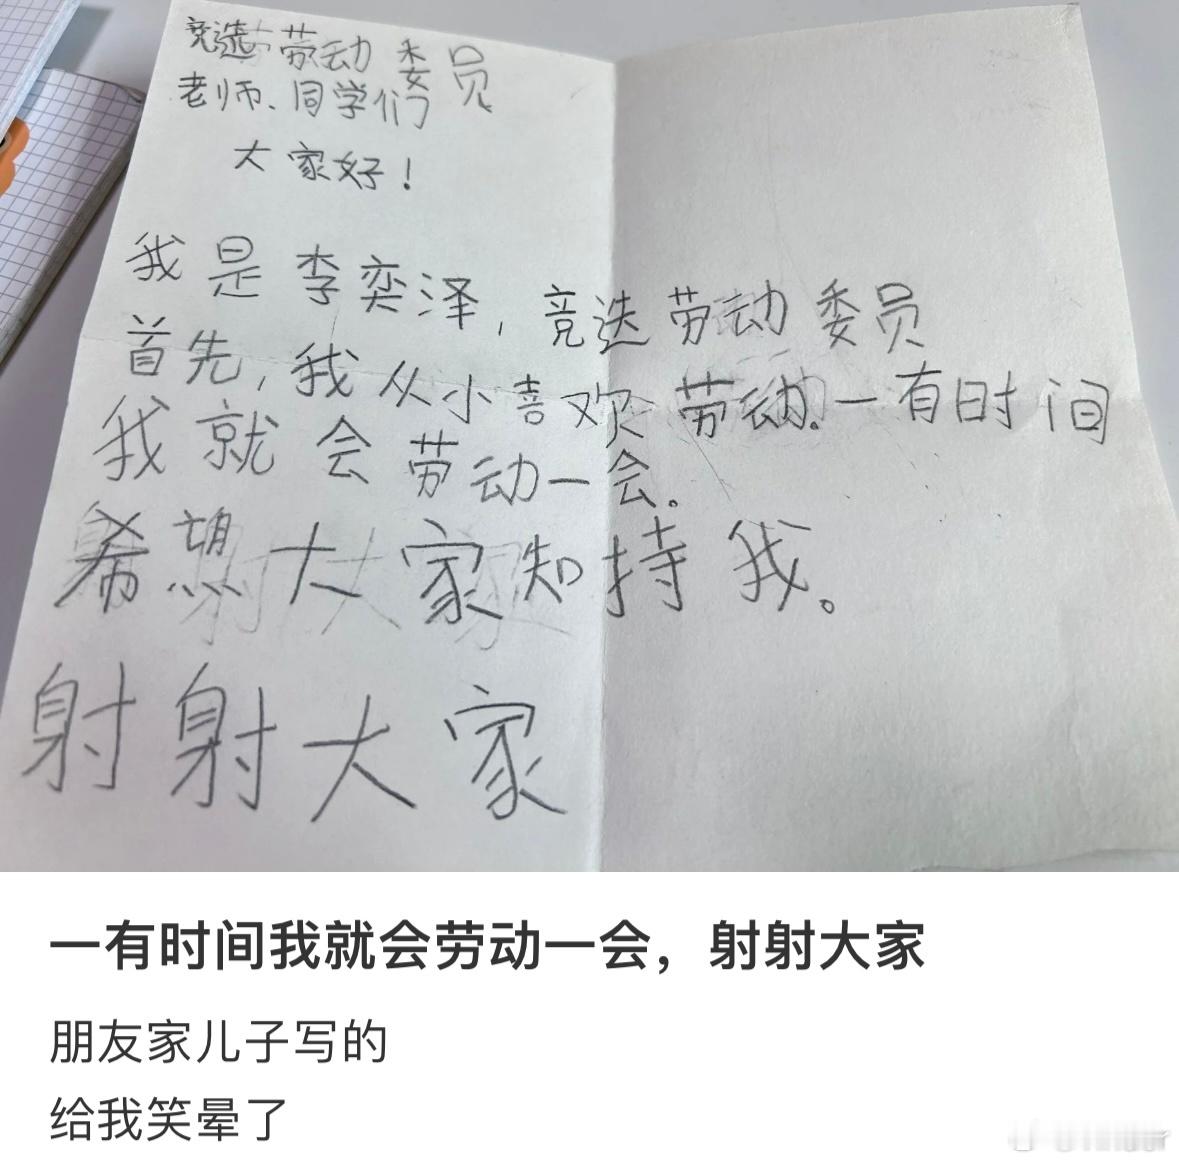 竞选劳动委员
老师、同学们
大家好！
我是李奕泽,竞选劳动委员
首先,我从小喜欢劳动.一有时间
我就会劳动一会。
希望大家知持我。
射射大家
一有时间我就会劳动一会，射射大家
朋友家儿子写的
给我笑晕了